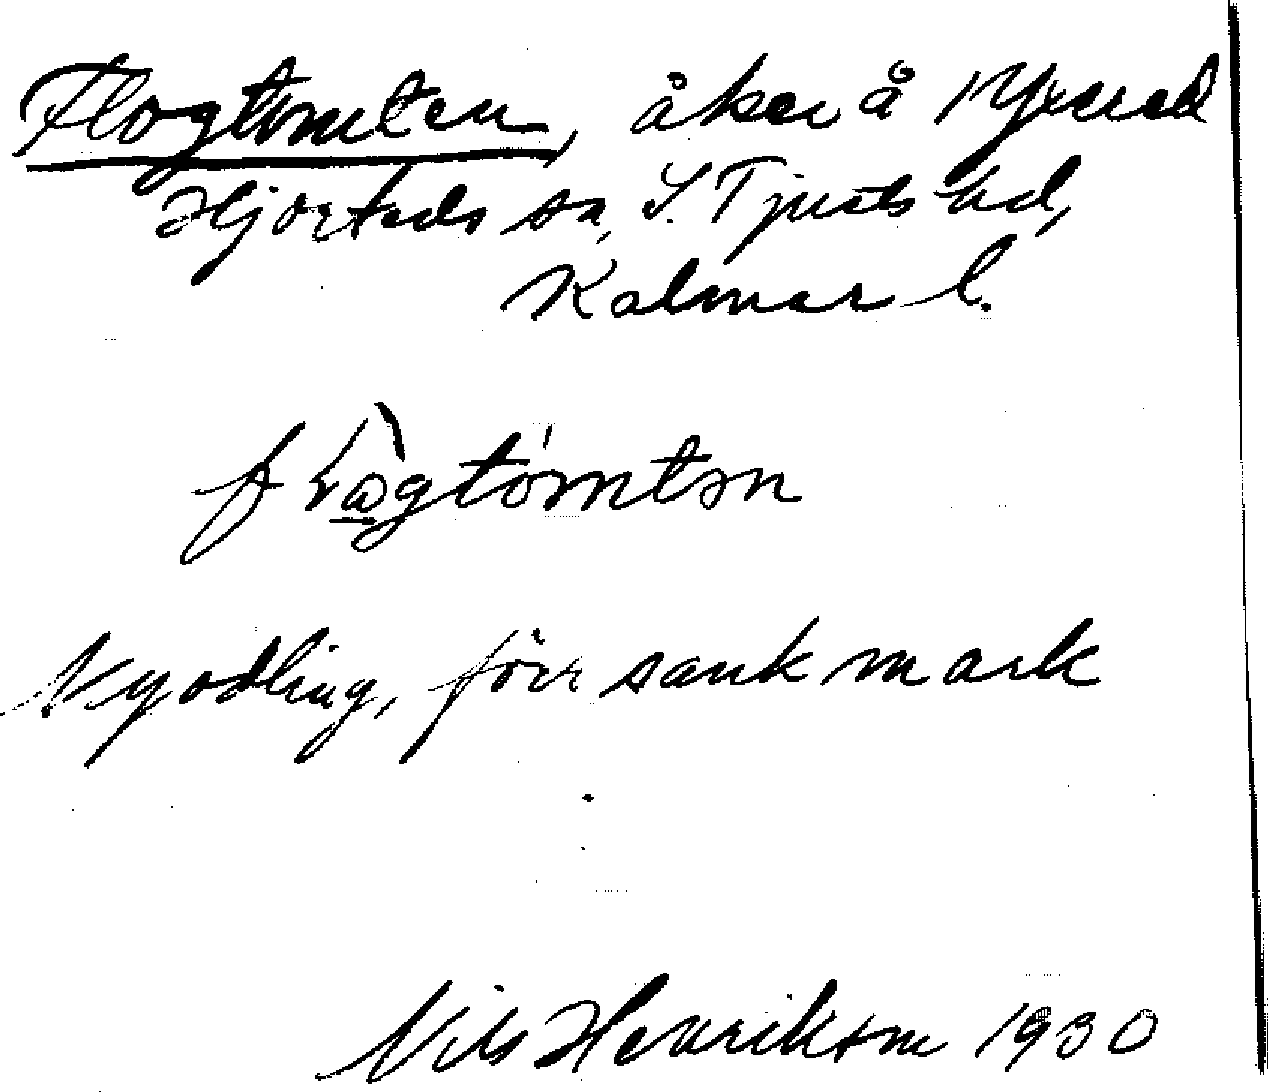 Flogtomten, åker å 1 Yxered
Hjorteds sn, S. Tjusts hd,
Kalmar l.
flωgtòmtən
Nyodling, förr sank mark
Nils Henrikson 1930